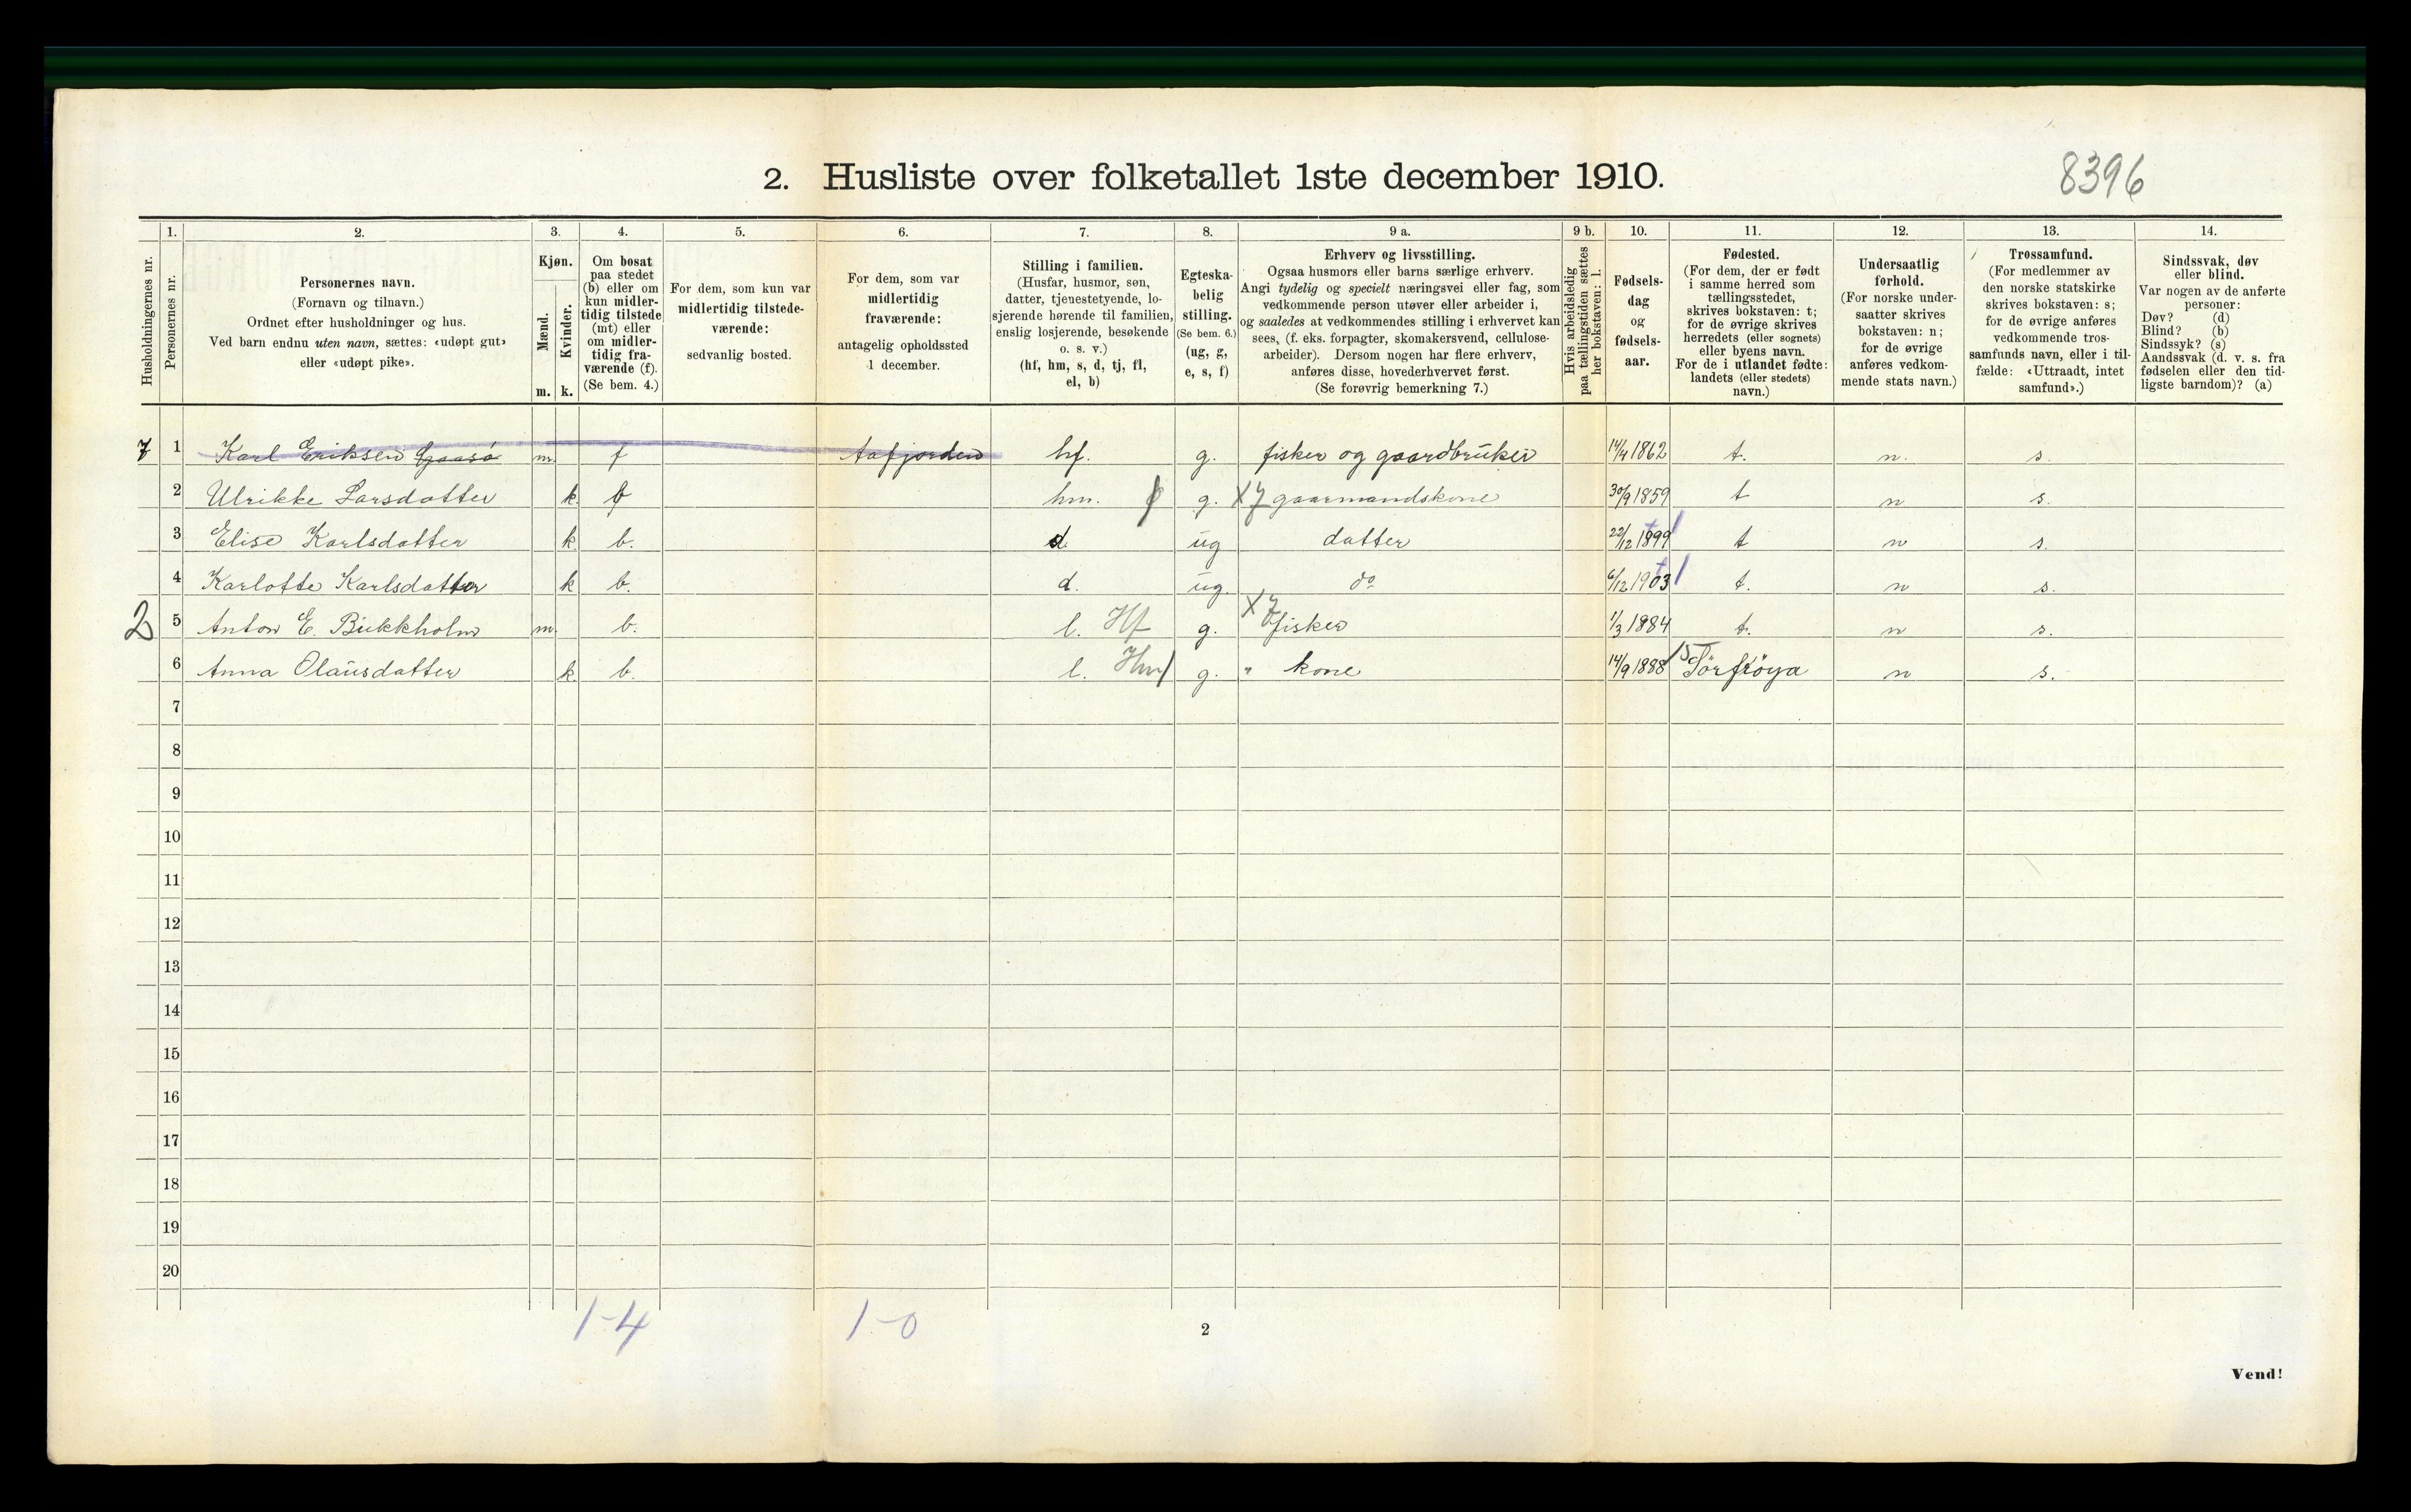 2. Husliste over folketallet 1ste december 1910.
8396
Husholdningernes nr.
1.
Personernes nr.
2.
Personernes navn.
(Fornavn og tilnavn.)
Ordnet efter husholdninger og hus.
Ved barn endnu uten navn, sættes: «udøpt gut»
eller «udøpt pike».
3.
Kjøn.
Mænd.
Kvinder.
m. k.
4.
Om bosat
paa stedet
(b) eller om
kun midler-
tidig tilstede
(mt) eller
om midler-
tidig fra-
værende (f).
(Se bem. 4.)
5.
For dem, som kun var
midlertidig tilstede-
værende:
sedvanlig bosted.
6.
For dem, som var
midlertidig
fraværende:
antagelig opholdssted
1 december.
7.
Stilling i familien.
(Husfar, husmor, søn,
datter, tjenestetyende, lo-
sjerende hørende til familien,
enslig losjerende, besøkende
o. s. v.)
(hf, hm, s, d, tj, fl,
el, b)
8.
Egteska-
belig
stilling.
(Se bem. 6.)
(ug, g,
e, s, f)
9 a.
Erhverv og livsstilling.
Ogsaa husmors eller barns særlige erhverv.
Angi tydelig og specielt næringsvei eller fag, som
vedkommende person utøver eller arbeider i,
og saaledes at vedkommendes stilling i erhvervet kan
sees, (f. eks. forpagter, skomakersvend, cellulose-
arbeider). Dersom nogen har flere erhverv,
anføres disse, hovederhvervet først.
(Se forøvrig bemerkning 7.)
9 b.
Hvis arbeidsledig
paa tællingstiden sættes
her bokstaven: l.
10.
Fødsels-
dag
og
fødsels-
aar.
11.
Fødested.
(For dem, der er født
i samme herred som
tællingsstedet,
skrives bokstaven: t;
for de øvrige skrives
herredets (eller sognets)
eller byens navn.
For de i utlandet fødte:
landets (eller stedets)
navn.)
12.
Undersaatlig
forhold.
(For norske under-
saatter skrives
bokstaven: n;
for de øvrige
anføres vedkom-
mende stats navn.)
13.
Trossamfund.
(For medlemmer av
den norske statskirke
skrives bokstaven: s;
for de øvrige anføres
vedkommende tros-
samfunds navn, eller i til-
fælde: «Uttraadt, intet
samfund».)
14.
Sindssvak, døv
eller blind.
Var nogen av de anførte
personer:
Døv? (d)
Blind? (b)
Sindssyk? (s)
Aandssvak (d. v. s. fra
fødselen eller den tid-
ligste barndom)? (a)
1 Karl Eriksen Gaasø m. f Aafjorden hf. g. fisker og gaardbruker 14/4 1862 t. n. s.
2 Ulrikke Larsdatter k. b hm. g. X7 gaarmandskone 30/9 1859 t n s.
3 Elise Karlsdatter k. b. d. ug datter 22/12 1899 t n s.
4 Karlotte Karlsdatter k b. d. ug. do 6/12 1903 t. n s.
2 5 Anton E. Bukkholm m. b. l. Hf g. X7 fisker 1/3 1884 t. n s.
6 Anna Olausdatter k. b. l. Hm g. " kone 14/9 1888 Sørfröya n s.
7
8
9
10
11
12
13
14
15
16
17
18
19
20
1-4 1-0
2
Vend!